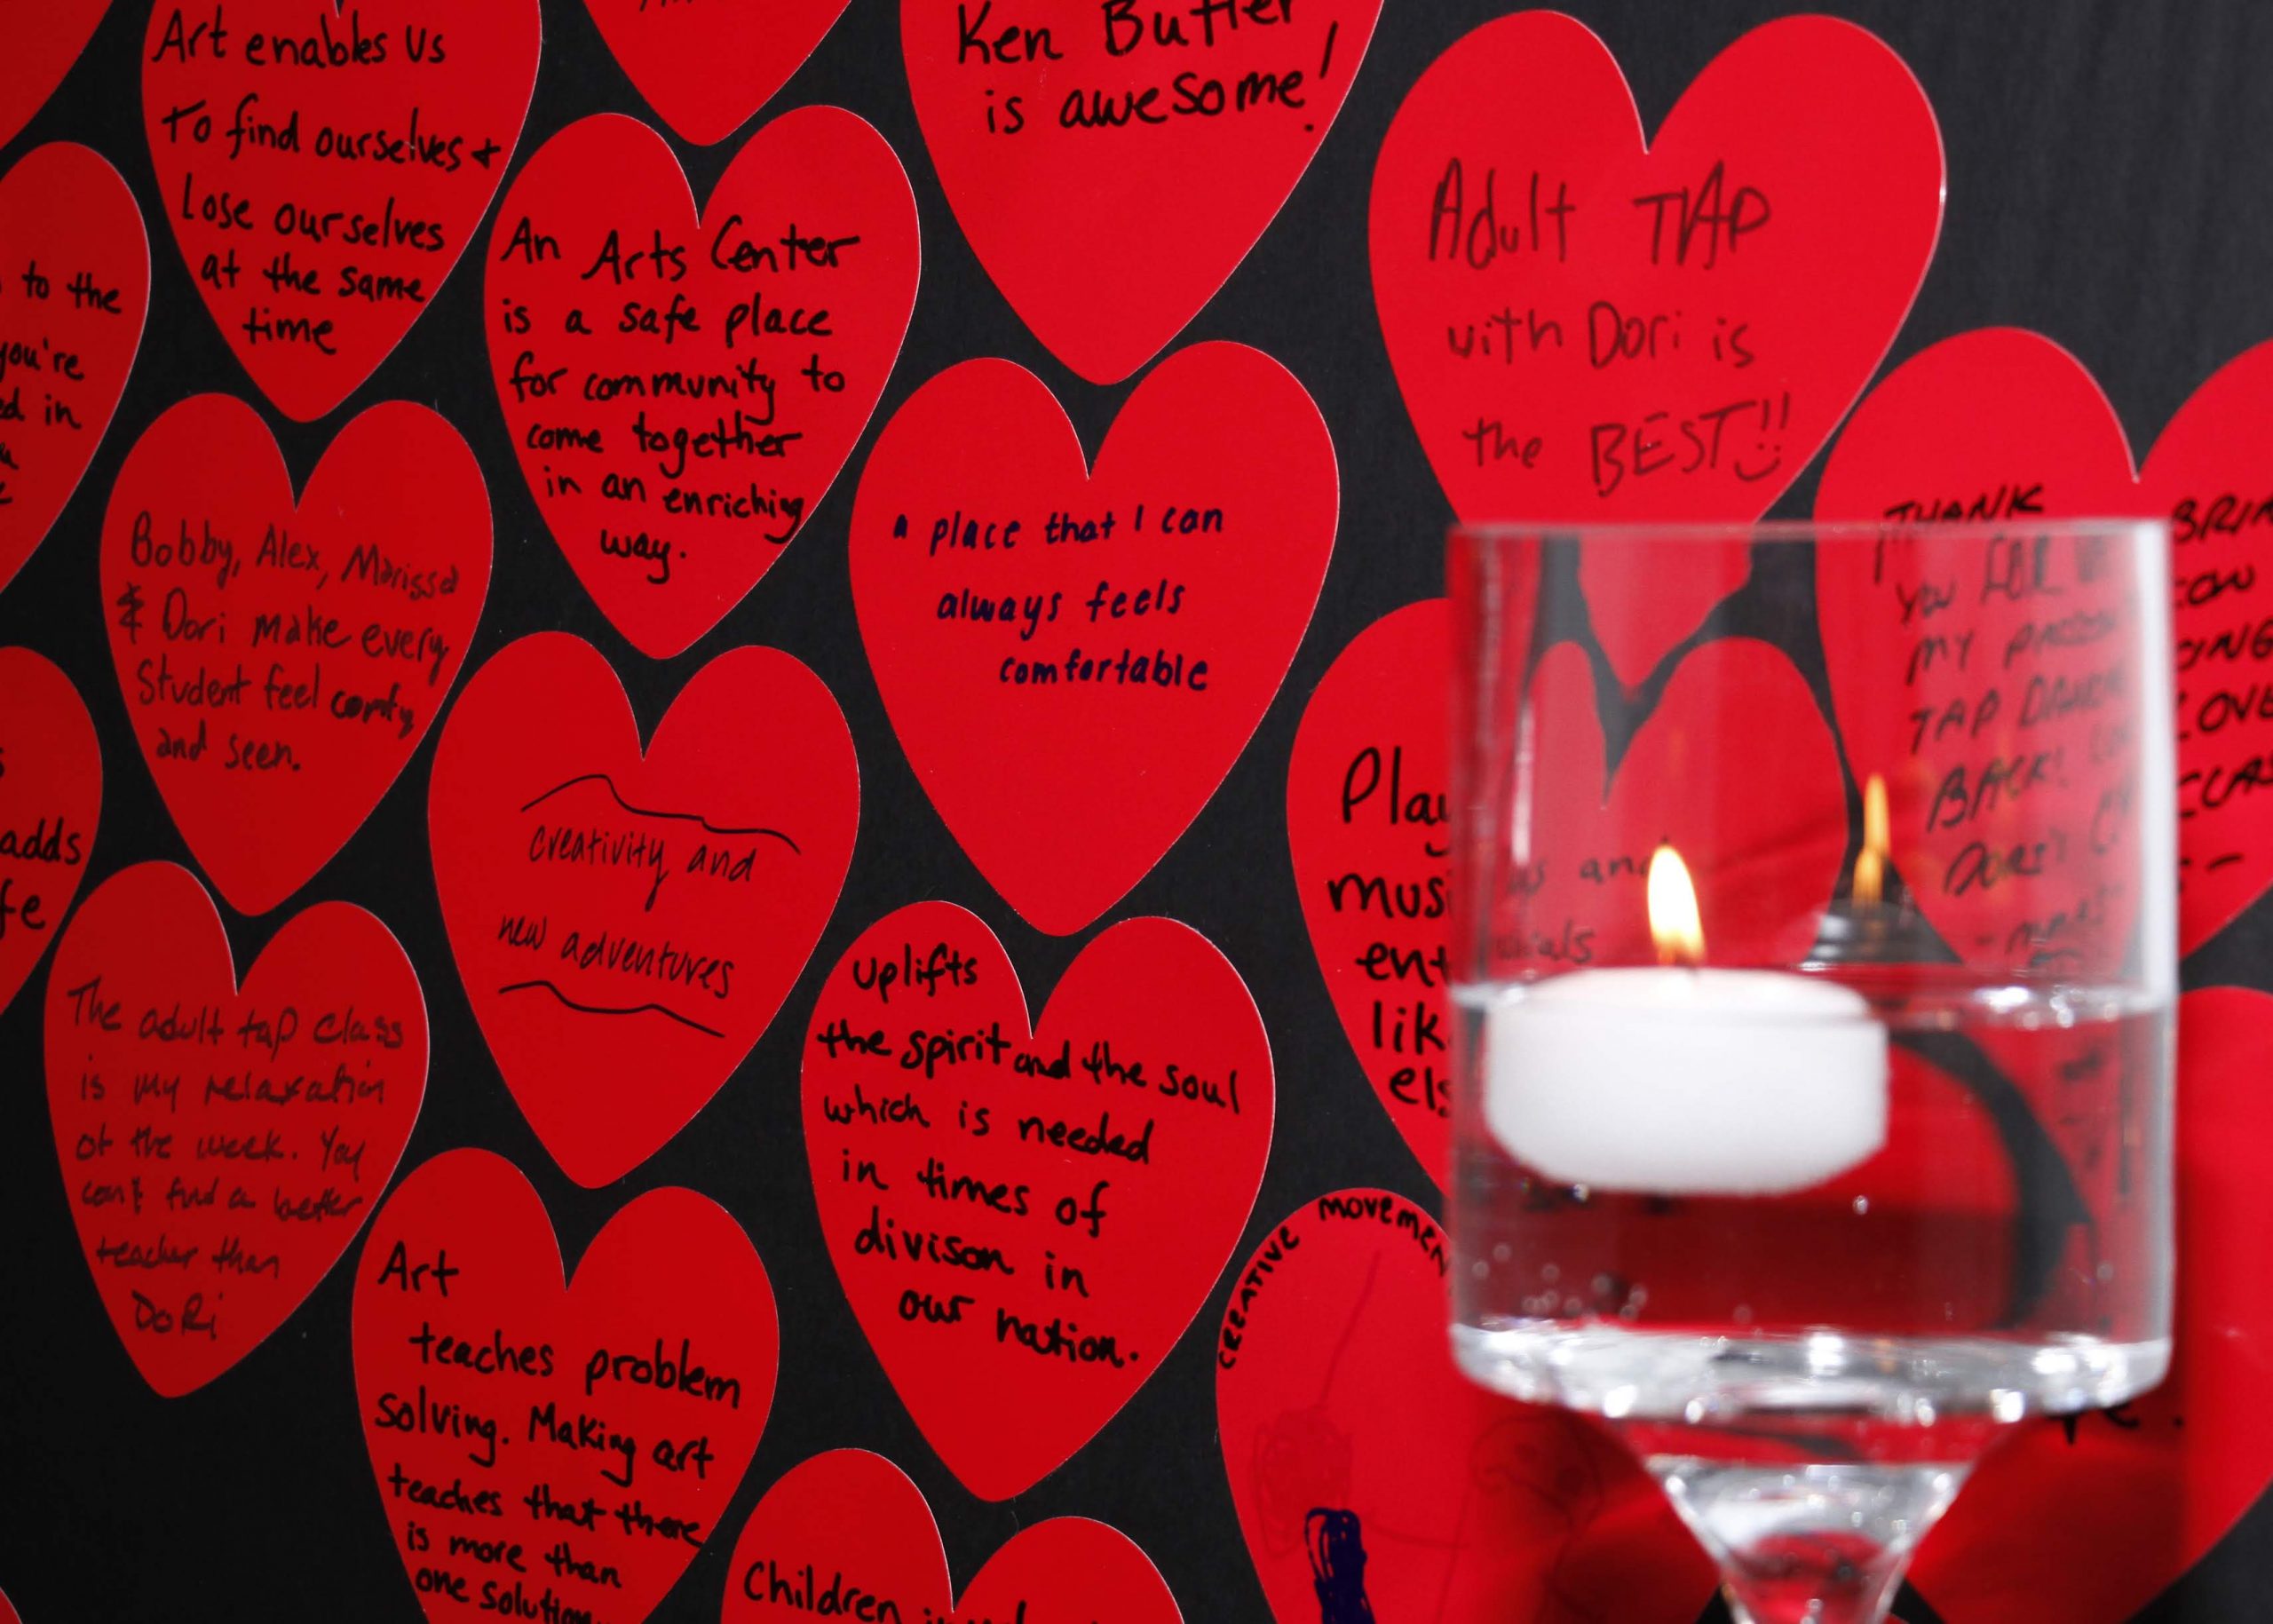 Art enables us
To find ourselves +
Lose ourselves
at the same
time
Ken Butler
is awesome!
Adult TAP
with Dori is
the BEST!!
An Arts Center
is a safe place
for community to
come together
in an enriching
way.
to the
you're
in
Bobby, Alex, Marissa
& Dori make every
Student feel comfy
and seen.
a place that I can
always feels
comfortable
THANK
YOU FOR
MY
TAP
BACK!
DORI'S
creativity and
new adventures
adds
Play
and
The adult tap class
is my relaxation
of the week. You
can't find a better
teacher than
DoRi
uplifts
the spirit and the soul
which is needed
in times of
divison in
our nation.
Art
teaches problem
solving. Making art
teaches that there
is more than
one solution
CREATIVE MOVEMENT
Children